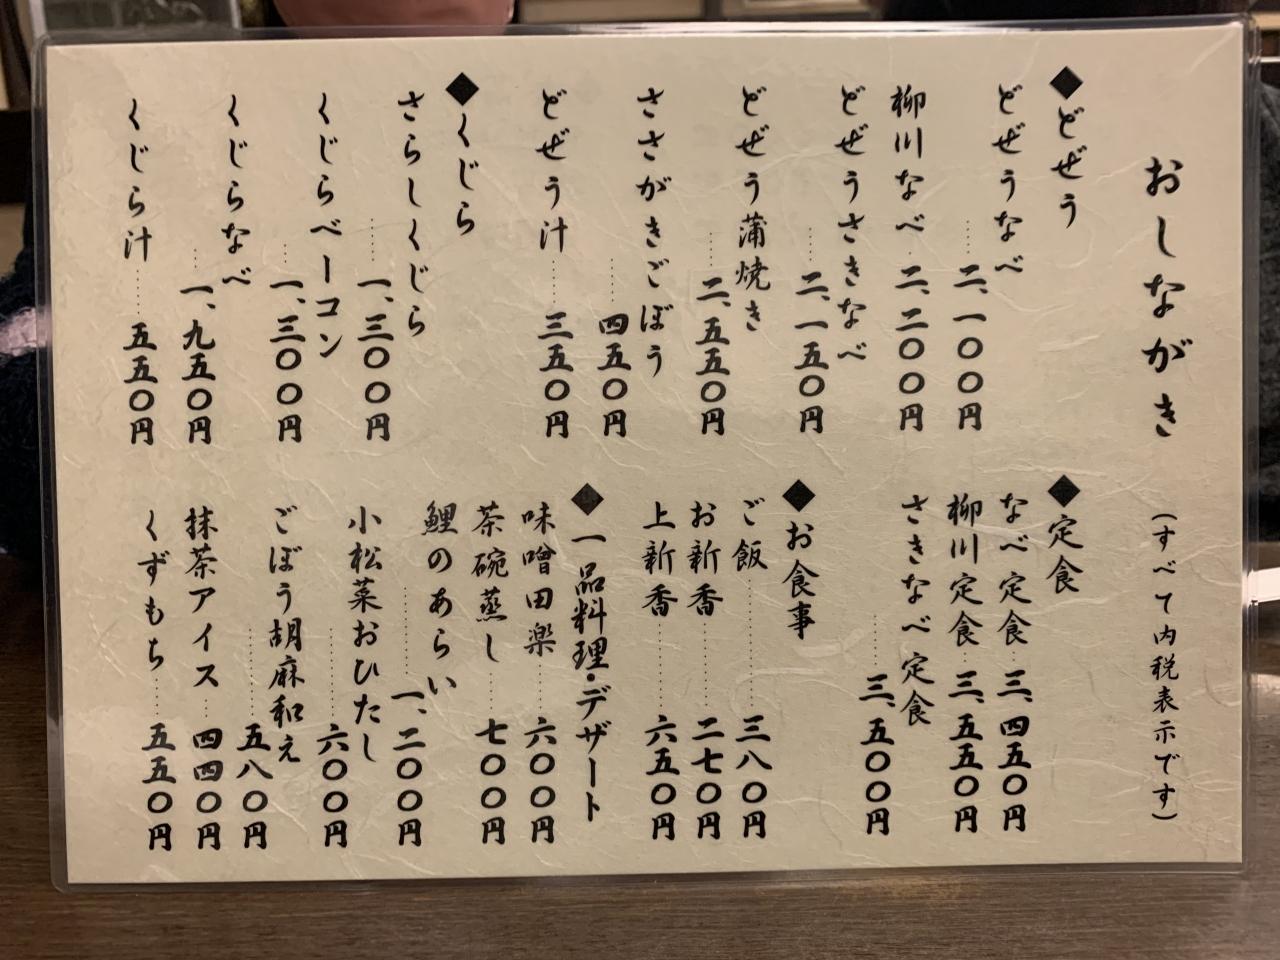 おしながき
(すべて内税表示です)
◆どぜう
どぜうなべ
二、一〇〇円
柳川なべ 二、二〇〇円
どぜうさきなべ
二、一五〇円
どぜう蒲焼き
二、五五〇円
ささがきごぼう
四五〇円
どぜう汁 三五〇円
◆くじら
さらしくじら
一、三〇〇円
くじらベーコン
一、三〇〇円
くじらなべ
一、九五〇円
くじら汁 五五〇円
◆定食
なべ定食 三、四五〇円
柳川定食 三、五五〇円
さきなべ定食
三、五〇〇円
◆お食事
ご飯 三八〇円
お新香 二七〇円
上新香 六五〇円
◆一品料理・デザート
味噌田楽 六〇〇円
茶碗蒸し 七〇〇円
鯉のあらい
一、二〇〇円
小松菜おひたし
六〇〇円
ごぼう胡麻和え
五八〇円
抹茶アイス 四四〇円
くずもち 五五〇円